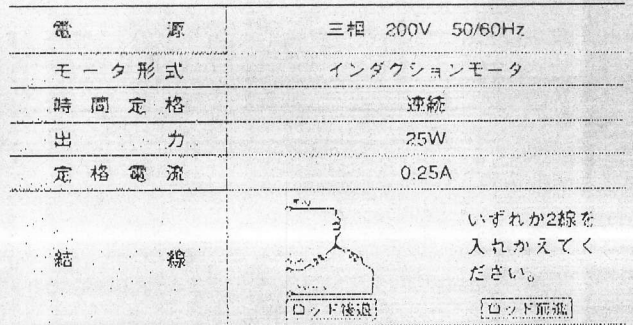 電源 三相 200V 50/60Hz
モータ形式 インダクションモータ
時間定格 連続
出力 25W
定格電流 0.25A
結線
いずれか2線を
入れかえてく
ださい。
ロッド後退 ロッド前進